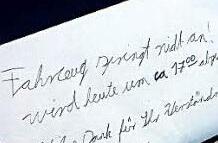 Fahrzeug springt nicht an!
wird heute um ca 17⁰⁰ abge
Vielen Dank für Ihr Verständn